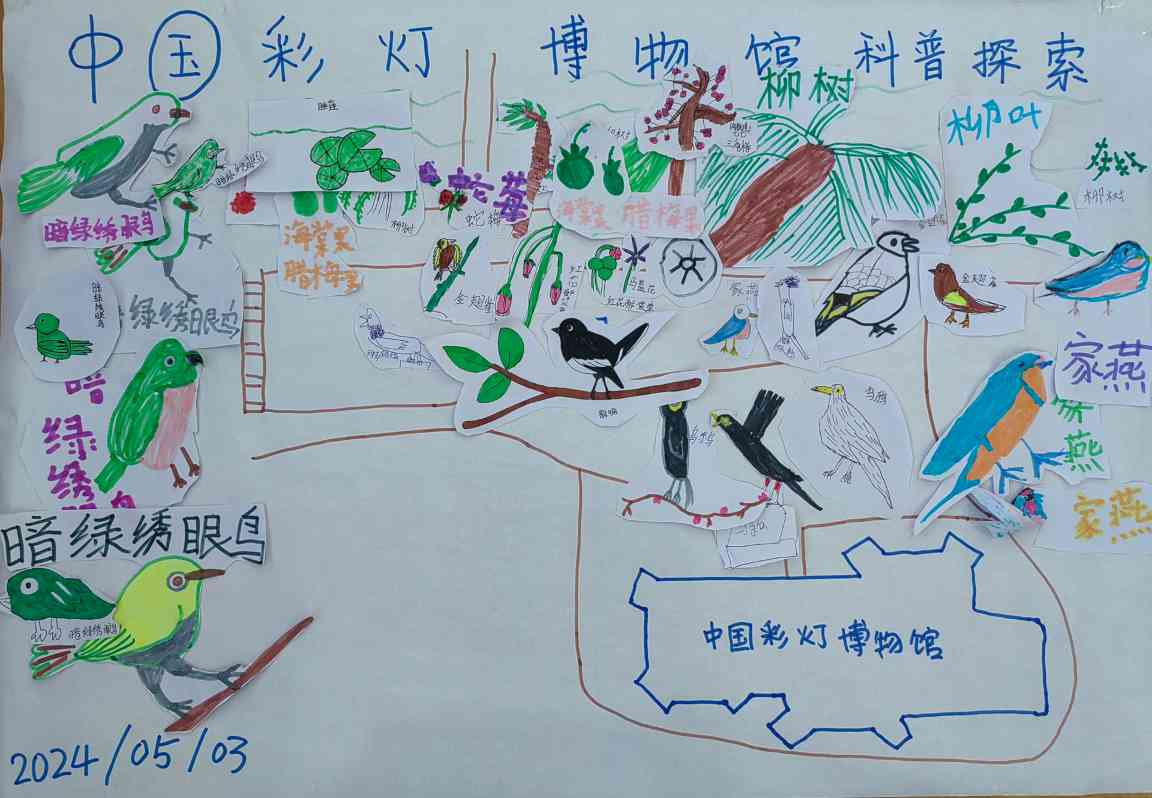 中国彩灯博物馆科普探索
睡莲
柳树
柳叶
柳树
蛇莓
蛇莓
海棠果 腊梅果
海棠果
腊梅果
柳树
暗绿绣眼鸟
暗绿绣眼鸟
绿绣眼鸟
暗绿绣眼鸟
暗
绿
绣
眼鸟
暗绿绣眼鸟
暗绿绣眼鸟
金翅雀
鸟蓝花
红花酢浆草
家燕
金翅雀
家燕
家燕
家燕
乌鸦
乌鸦
中国彩灯博物馆
2024/05/03